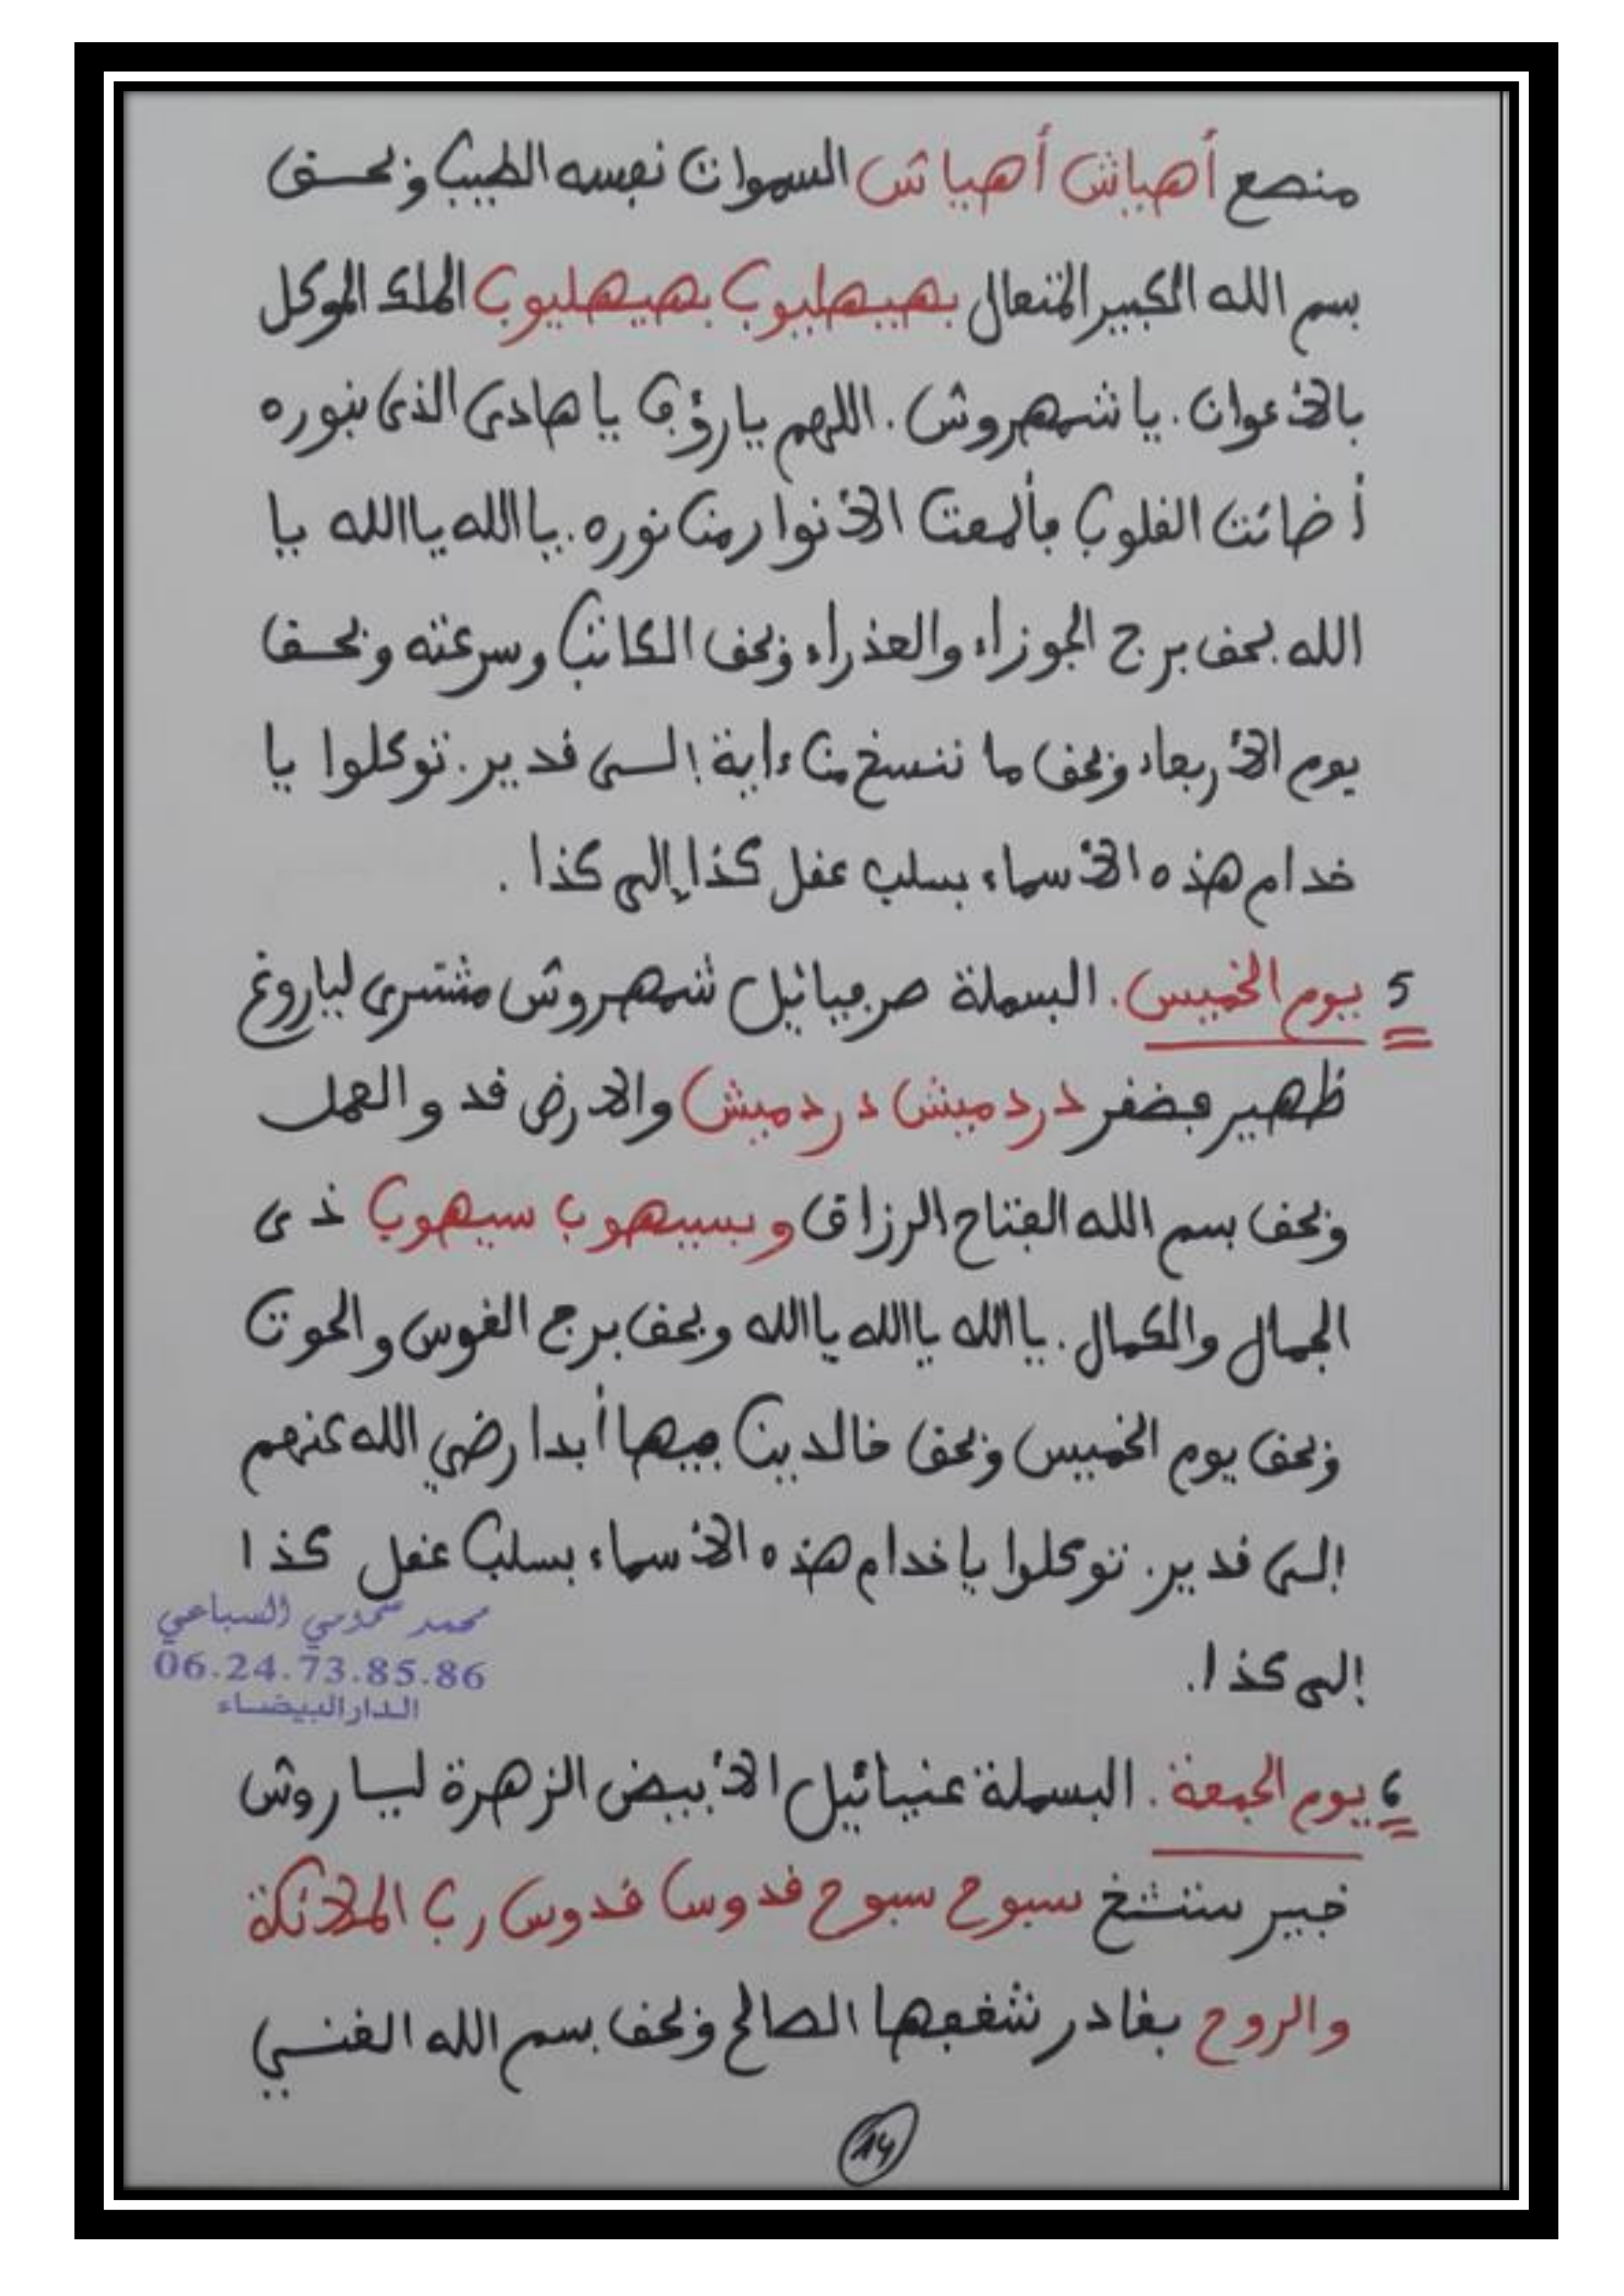 منصع أهياش أهياش السموات نفسه الطيب وبحق
بسم الله الكبير المتعال بهيهليوب بهيهليوب الملك الموكل
بالأعوان. يا شمهروش. اللهم يا رؤف يا هادى الذى بنوره
أضائت القلوب فألمعت الأنوار من نوره. يا الله يا الله يا
الله. بحق برج الجوزاء والعذراء وبحق الكاتب وسرعته وبحق
يوم الأربعاء وبحق ما ننسخ من ءاية إلى قدير. توكلوا يا
خدام هذه الأسماء بسلب عقل كذا إلى كذا.
5 يوم الخميس. البسملة صرفيائيل شمهروش مشترى لياروغ
ظهير فضفر دردميش دردميش والارض قد و العمل
وبحق بسم الله الفتاح الرزاق وبسيهوب سيهوب ذى
الجمال والكمال. يا الله يا الله يا الله وبحق برج القوس والحوت
وبحق يوم الخميس وبحق خالدين فيها أبدا رضي الله عنهم
إلى قدير. توكلوا يا خدام هذه الأسماء بسلب عقل كذا
محمد السباعي
06.24.73.85.86
الدار البيضاء
إلى كذا.
6 يوم الجمعة. البسملة عنيائيل الأبيض الزهرة لياروش
خبير ستثخ سبوح سبوح قدوس قدوس رب الملائكة
والروح بقادر نشففها الصالح وبحق بسم الله الغني
14